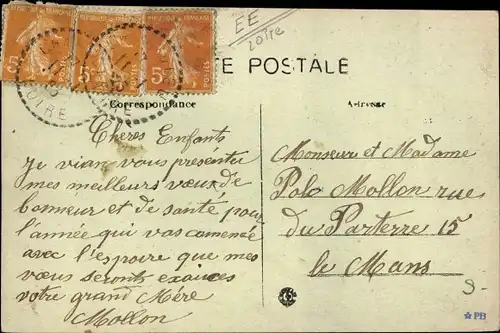 EE
Loire
TE POSTALE
Correspondance
Adresse
Chères Enfants
Je vian vous presenter
mes meilleurs vœux de
bonneur et de santé pour
l'année qui vas comencée
avec l'espoire que mes
vœus seronts exaucés
votre grand Mére
Mollon
Monseur et Madame
Polo Mollon rue
du Parterre 15
le Mans
PB